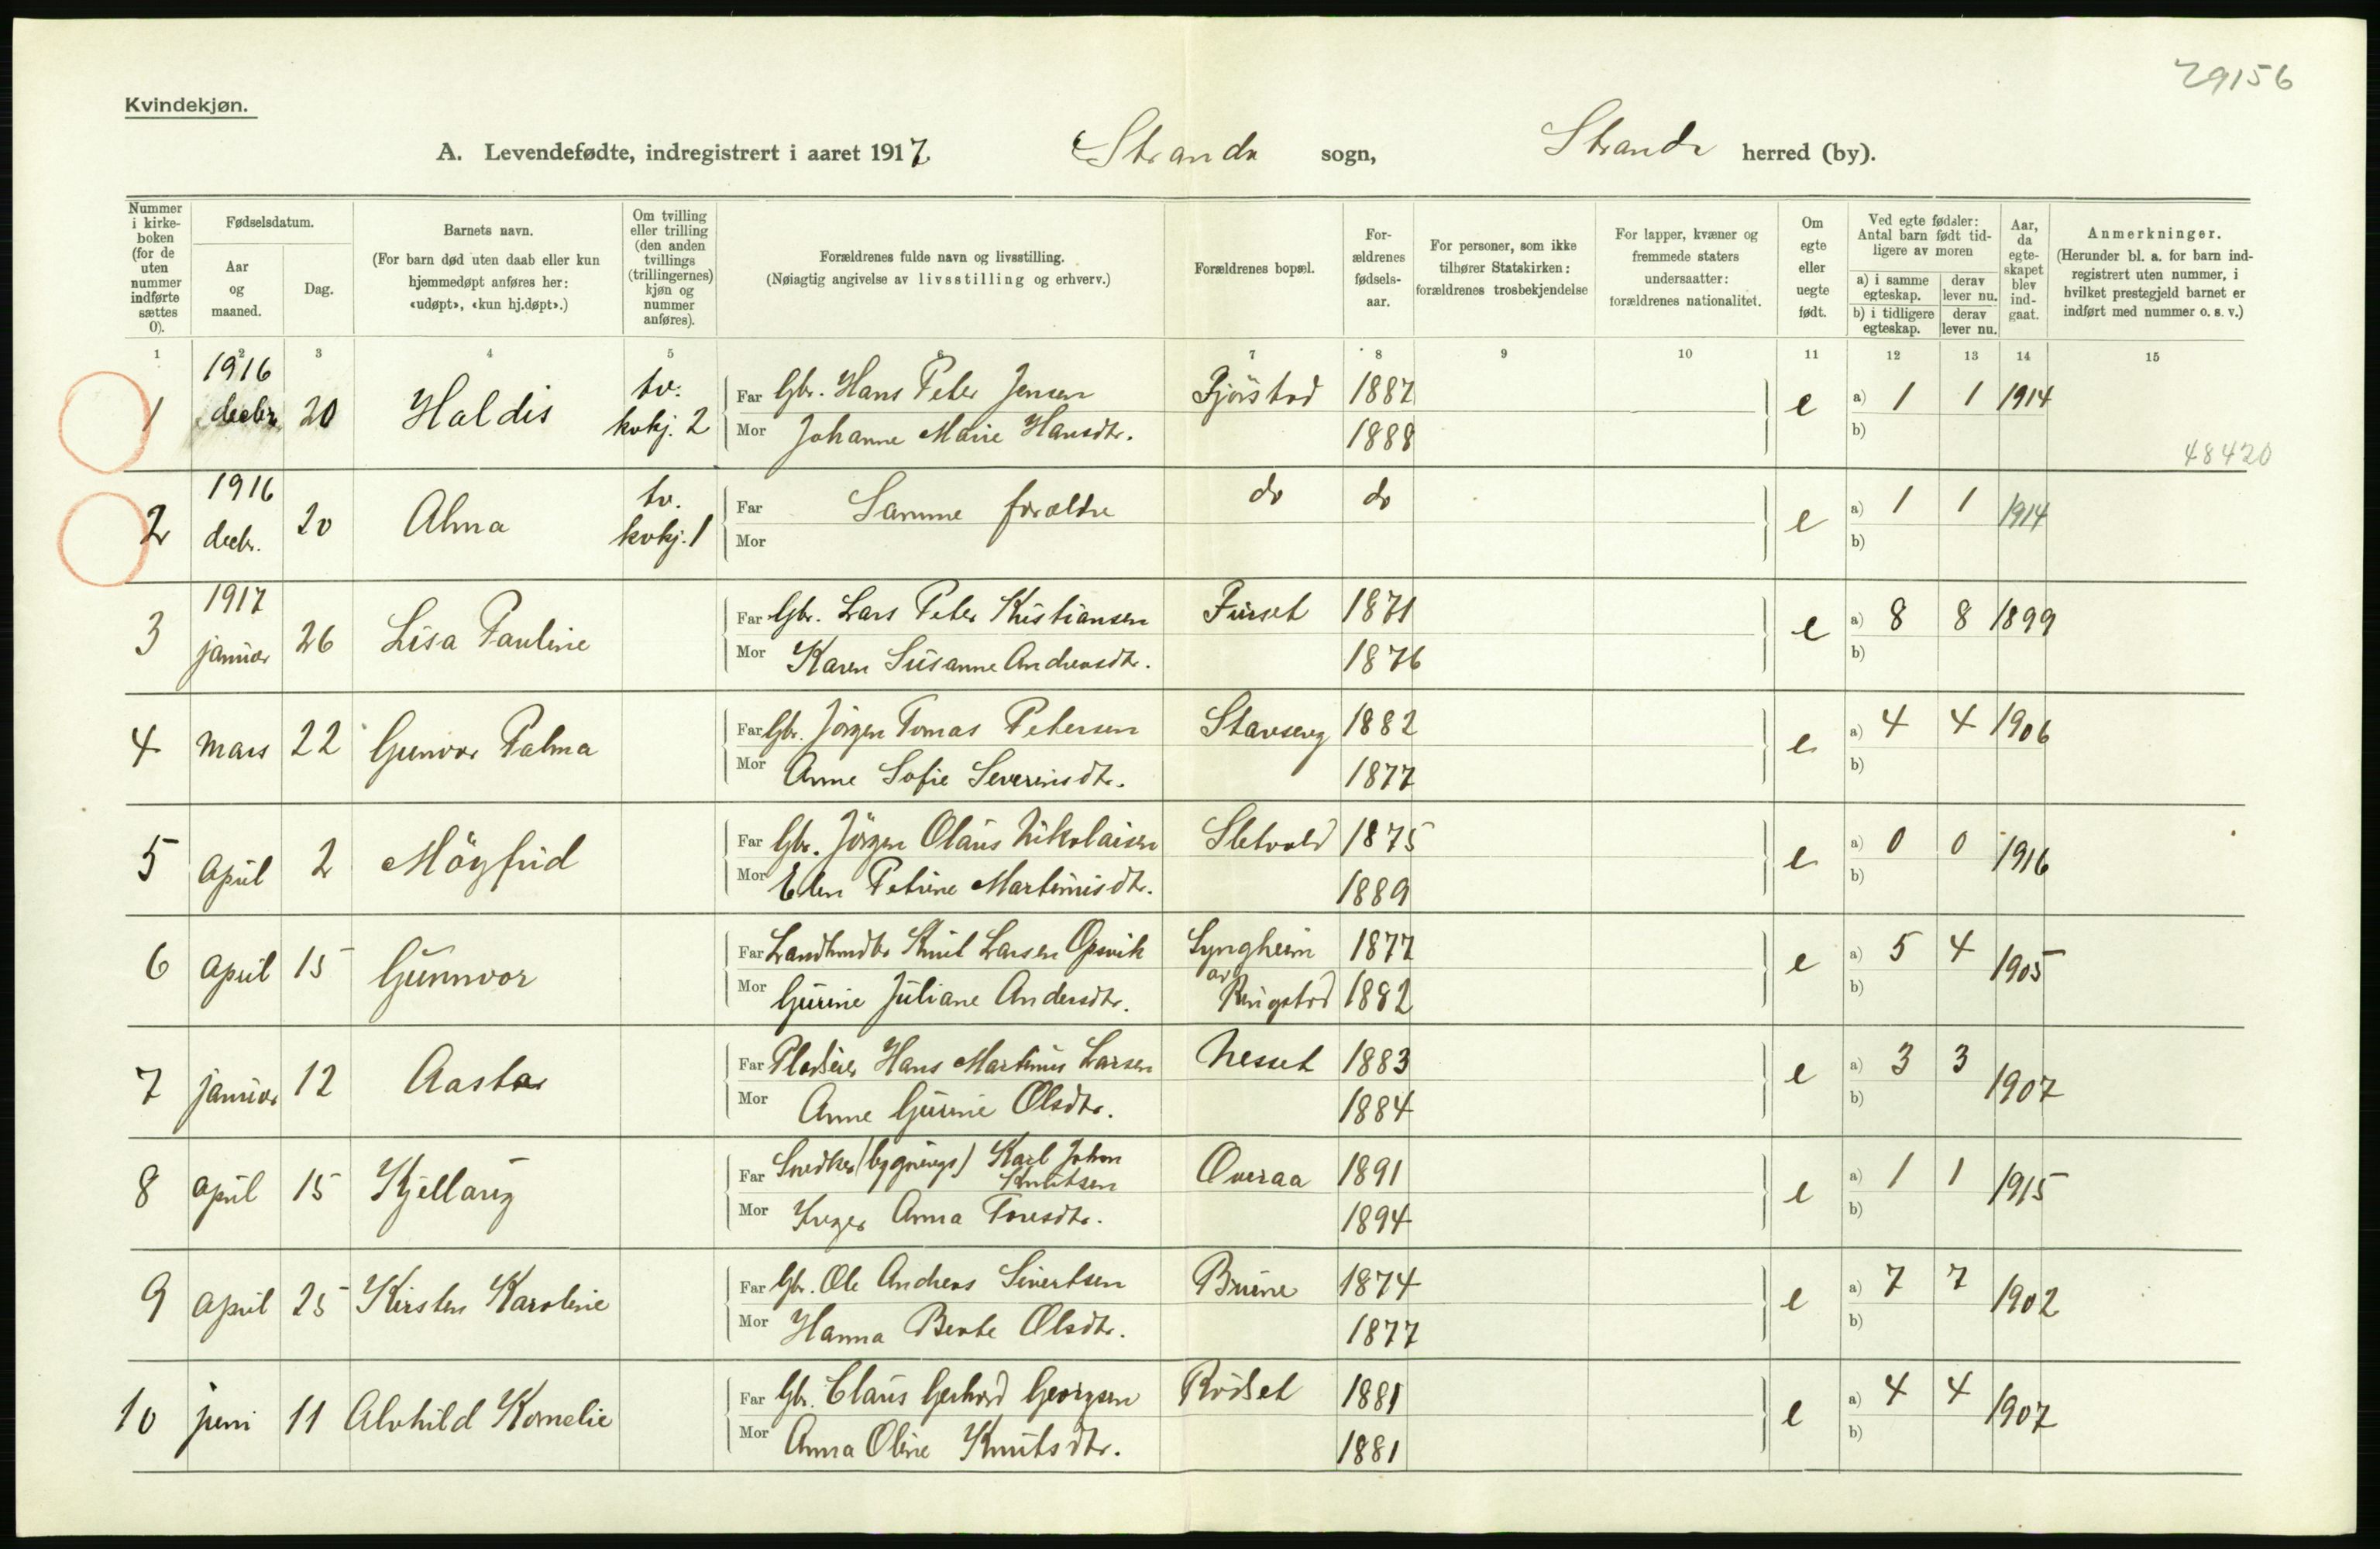 29156
Kvindekjøn.
A. Levendefødte, indregistrert i aaret 1917. Stranda sogn, Stranda herred (by).
Nummer i kirkeboken (for de uten nummer indførte sættes 0).
Fødselsdatum.
Aar og maaned.
Dag.
Barnets navn.
(For barn død uten daab eller kun hjemmedøpt anføres her: «udøpt», «kun hj.døpt».)
Om tvilling eller trilling (den anden tvillings (trillingernes) kjøn og nummer anføres).
Forældrenes fulde navn og livsstilling.
(Nøiagtig angivelse av livsstilling og erhverv.)
Forældrenes bopæl.
Forældrenes fødselsaar.
For personer, som ikke tilhører Statskirken: forældrenes trosbekjendelse
For lapper, kvæner og fremmede staters undersaatter: forældrenes nationalitet.
Om egte eller uegte født.
Ved egte fødsler: Antal barn født tidligere av moren
a) i samme egteskap. derav lever nu.
b) i tidligere egteskap. derav lever nu.
Aar, da egteskapet blev indgaat.
Anmerkninger.
(Herunder bl. a. for barn indregistrert uten nummer, i hvilket prestegjeld barnet er indført med nummer o. s. v.)
1 2 3 4 5 6 7 8 9 10 11 12 13 14 15
1 1916 decbr. 20 Haldis tv. kvkj. 2 Far Gbr. Hans Peter Jensen Fjörstad 1887 e a) 1 1 1914
Mor Johanne Marie Hansdtr. 1888 b)
48420
2 1916 decbr. 20 Alma tv. kvkj. 1 Far Samme forældre do do e a) 1 1 1914
Mor b)
3 1917 januar 26 Lisa Pauline Far Gbr. Lars Peter Kristiansen Furset 1871 e a) 8 8 1899
Mor Karen Susanne Andreasdtr. 1876 b)
4 mars 22 Gunvor Palma Far Gbr. Jörgen Tomas Petersen Stavseng 1882 e a) 4 4 1906
Mor Anne Sofie Severinsdtr. 1877 b)
5 april 2 Möyfrid Far Gbr. Jörgen Olaus Nikolaisen Sletvold 1875 e a) 0 0 1916
Mor Elen Petrine Martinusdtr. 1889 b)
6 april 15 Gunnvor Far Landhndlr Knut Larsen Opsvik Lyngheim 1877 e a) 5 4 1905
Mor Gurine Juliane Andersdtr. av Ringstad 1882 b)
7 januar 12 Aasta Far Pladseier Hans Martinus Larsen Nesset 1883 e a) 3 3 1907
Mor Anne Gurine Olsdtr. 1884 b)
8 april 15 Kjellaug Far Snedker (bygnings) Karl Johan Knutsen Overaa 1891 e a) 1 1 1915
Mor Inger Anna Toresdtr. 1894 b)
9 april 25 Kirsten Karoline Far Gbr. Ole Andreas Sivertsen Brune 1874 e a) 7 7 1902
Mor Hanna Berte Olsdtr. 1877 b)
10 juni 11 Alvhild Kornelie Far Gbr. Claus Gerhard Georgsen Rödset 1881 e a) 4 4 1907
Mor Anna Oline Knutsdtr. 1881 b)